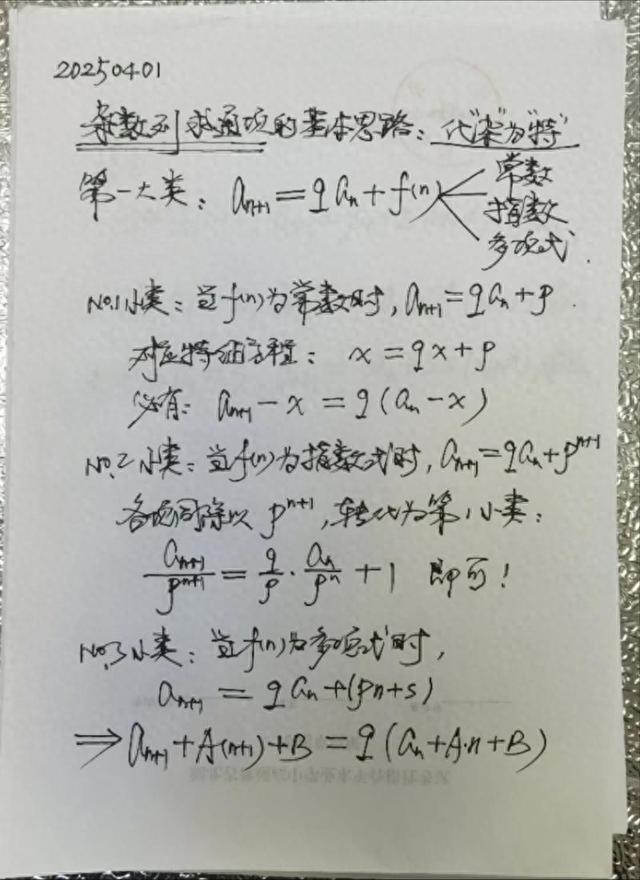 20250401
杂数列求通项的基本思路：代"杂"为"特"
第一大类：aₙ₊₁ = qaₙ + f(n)
常数
指数
多项式
No.1小类：当f(n)为常数时，aₙ₊₁ = qaₙ + p.
对应特征方程：x = qx + p
必有：aₙ₊₁ - x = q(aₙ - x)
No.2小类：当f(n)为指数式时，aₙ₊₁ = qaₙ + pⁿ⁺¹
各项同除以 pⁿ⁺¹，转化为第1小类：
aₙ₊₁/pⁿ⁺¹ = q/p · aₙ/pⁿ + 1 即可！
No.3小类：当f(n)为多项式时，
aₙ₊₁ = qaₙ + (pn+s)
⇒ aₙ₊₁ + A(n+1) + B = q(aₙ + A·n + B)